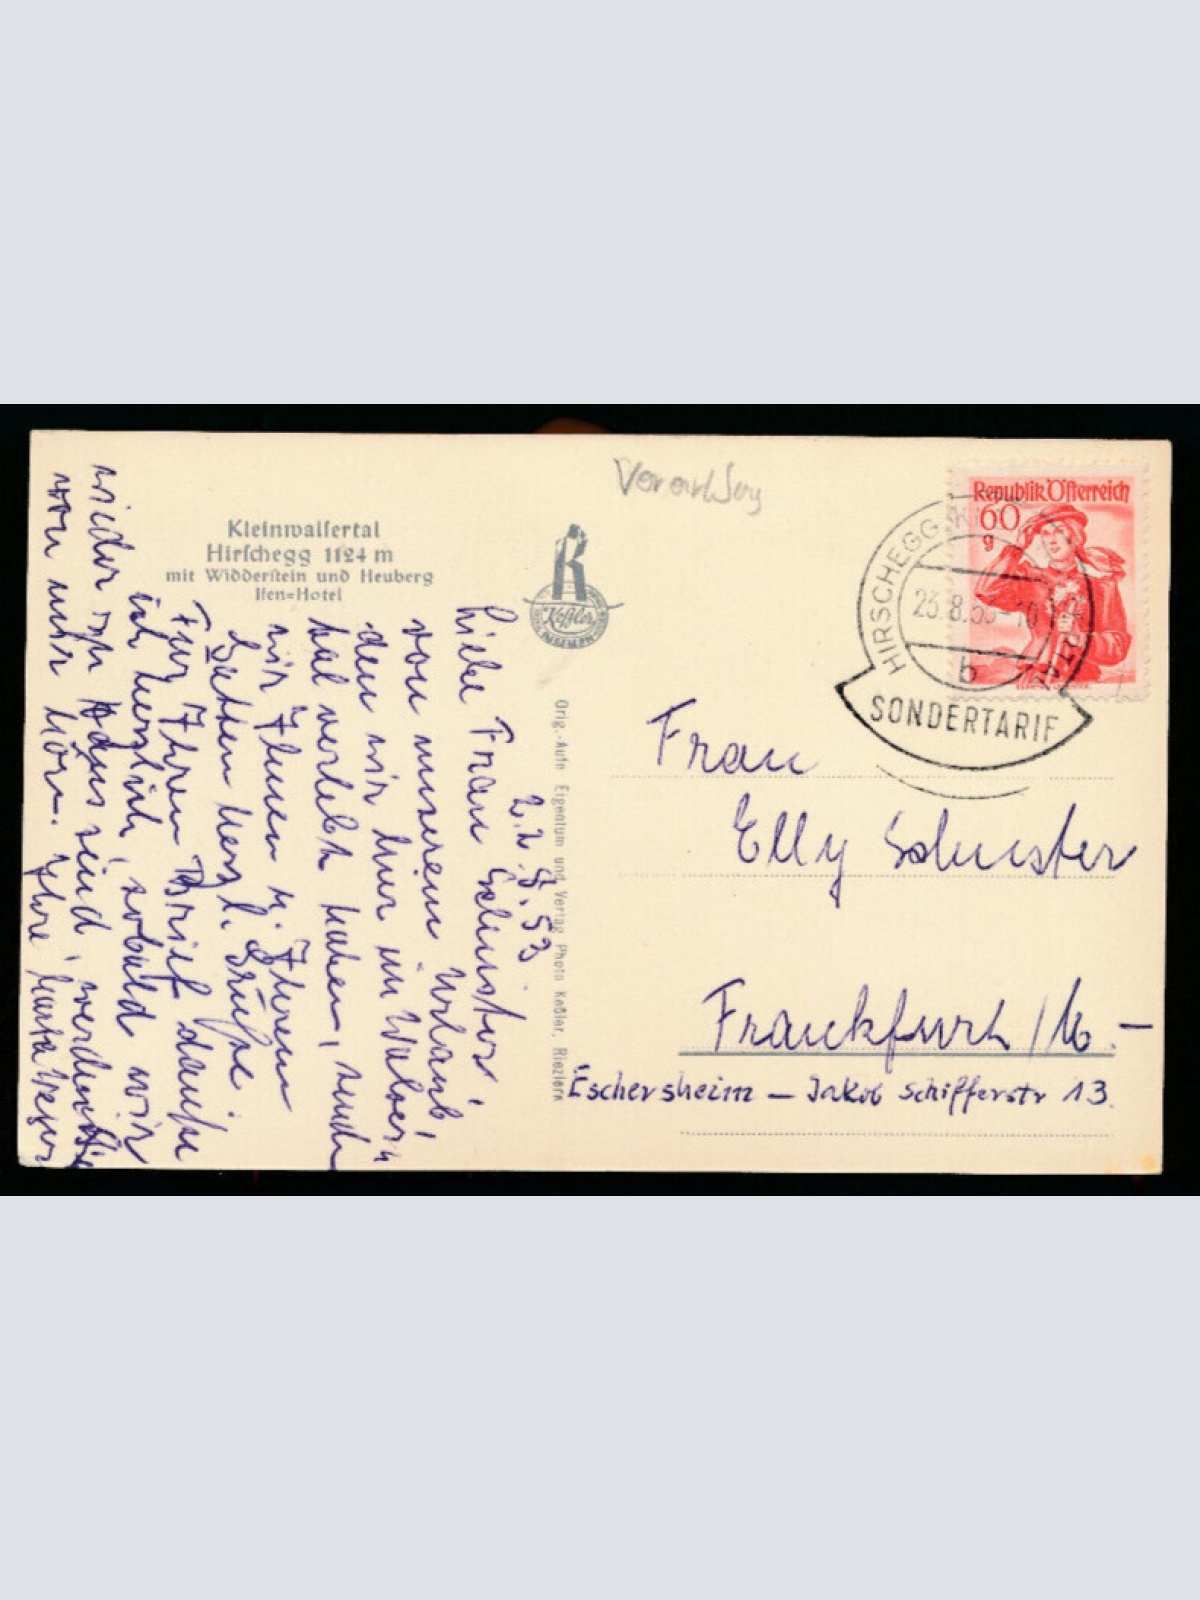 Verarlberg
Kleinwalsertal
Hirschegg 1124 m
mit Widderstein und Heuberg
Ifen=Hotel
Keßler
Orig.-Aufn Eigentum und Verlag Photo Keßler, Riezlern
Republik Österreich
60
g
HIRSCHEGG
23.8.53-10
b
SONDERTARIF
22.8.53
Liebe Frau Schuster
von unserem Urlaub,
den wir hier im Walser-
tal verlebt haben, senden
wir Ihnen u. Ihrem
Gatten herzl. Grüße
Für Ihren Brief danke
ich herzlich, sobald wir
wieder zu Haus sind, werden Sie
von mir hören. Ihre
Frau
Elly Schuster
Frankfurt/M.-
Eschersheim - Jakob Schifferstr 13.